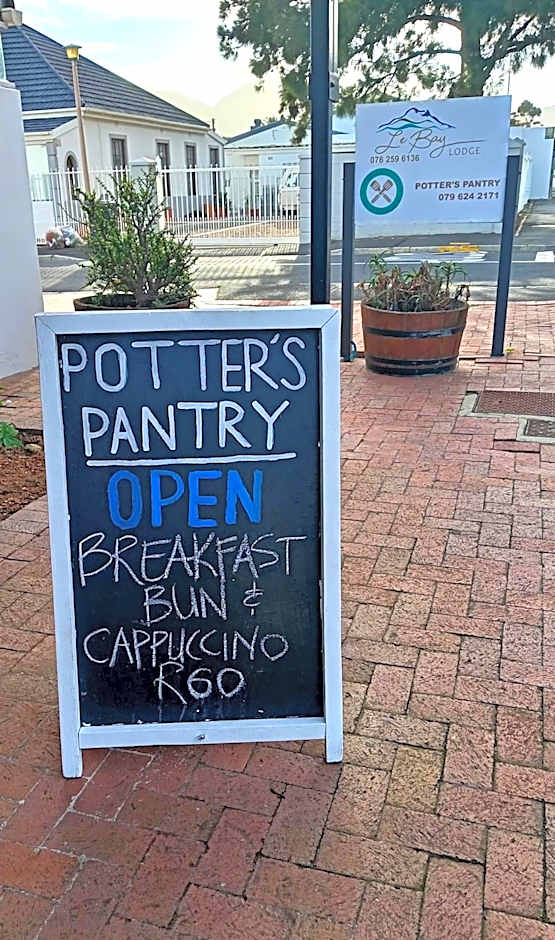 Le Bay
LODGE
076 259 6136
POTTER'S PANTRY
079 624 2171
POTTER'S
PANTRY
OPEN
BREAKFAST
BUN &
CAPPUCCINO
R60